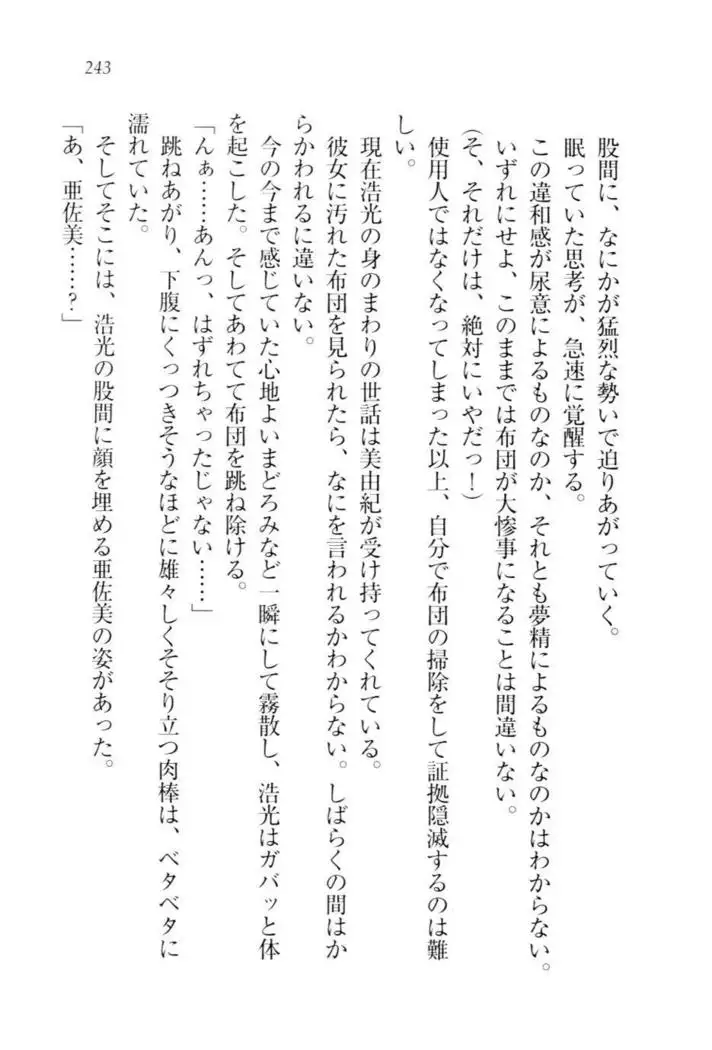 243
股間に、なにかが猛烈な勢いで迫りあがっていく。
眠っていた思考が、急速に覚醒する。
この違和感が尿意によるものなのか、それとも夢精によるものなのかはわからない。
いずれにせよ、このままでは布団が大惨事になることは間違いない。
(そ、それだけは、絶対にいやだっ！)
使用人ではなくなってしまった以上、自分で布団の掃除をして証拠隠滅するのは難
しい。
現在浩光の身のまわりの世話は美由紀が受け持ってくれている。
彼女に汚れた布団を見られたら、なにを言われるかわからない。しばらくの間はか
らかわれるに違いない。
今の今まで感じていた心地よいまどろみなど一瞬にして霧散し、浩光はガバッと体
を起こした。そしてあわてて布団を跳ね除ける。
「んぁ……あんっ、はずれちゃったじゃない……」
跳ねあがり、下腹にくっつきそうなほどに雄々しくそそり立つ肉棒は、ベタベタに
濡れていた。
そしてそこには、浩光の股間に顔を埋める亜佐美の姿があった。
「あ、亜佐美……？」